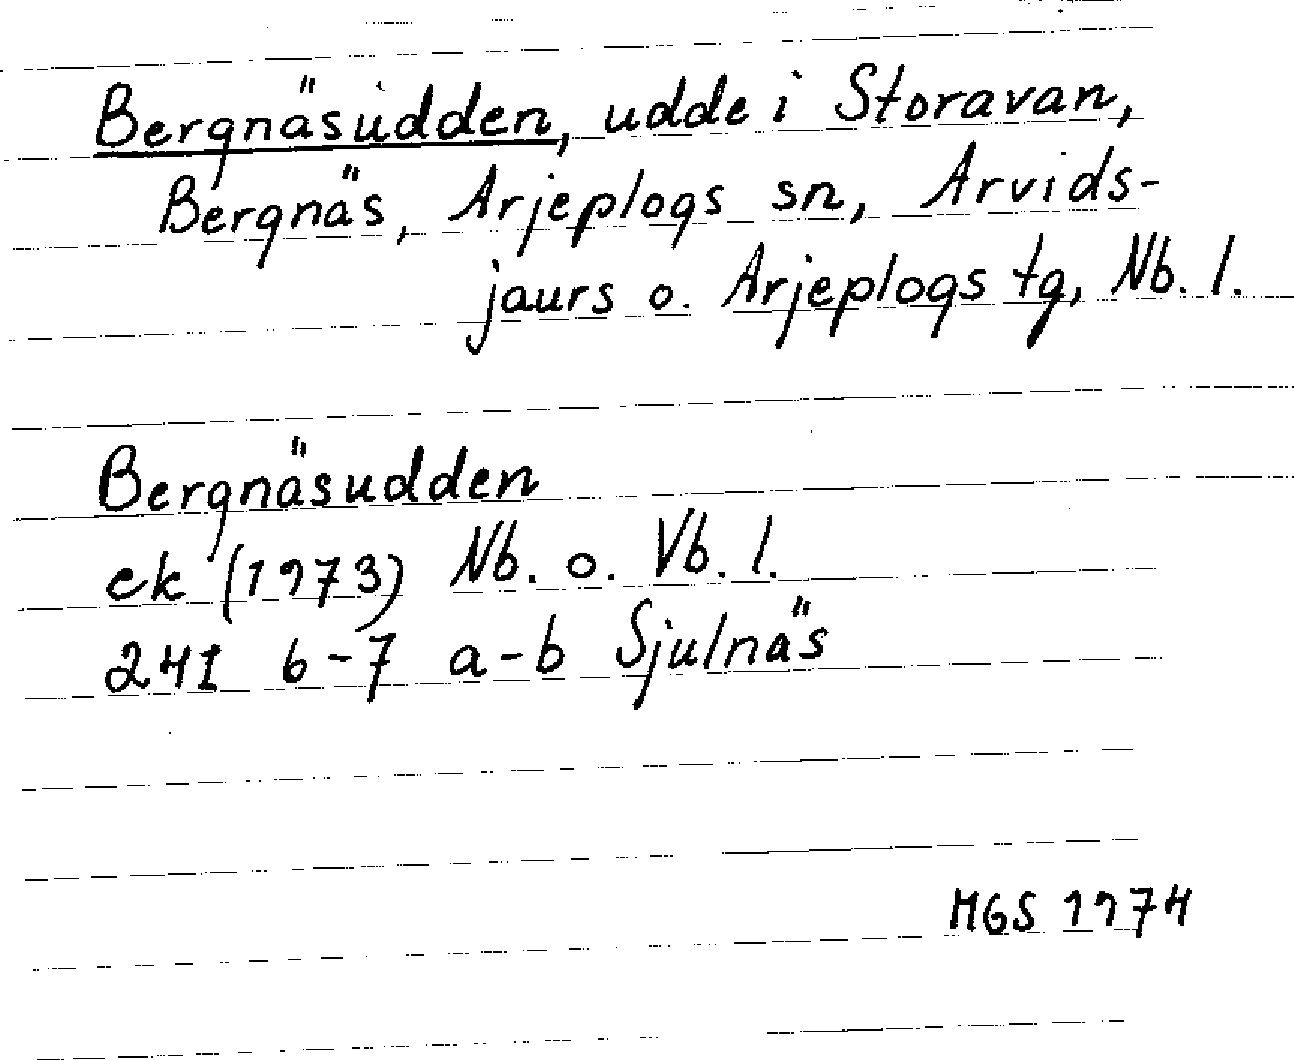 Bergnäsudden, udde i Storavan,
Bergnäs, Arjeplogs sn, Arvids-
jaurs o. Arjeplogs tg, Nb. l.
Bergnäsudden
ek (1973) Nb. o. Vb. l.
24I 6-7 a-b Sjulnäs
MGS 1974